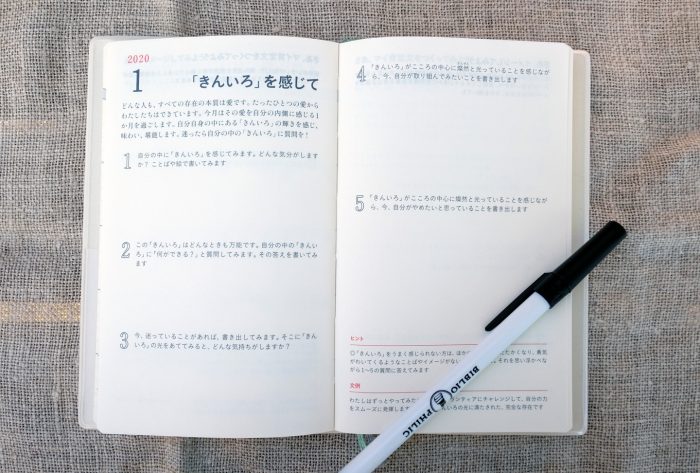 2020
1
「きんいろ」を感じて
どんな人も、すべての存在の本質は愛です。たったひとつの愛から
わたしたちはできています。今月はその愛を自分の内側に感じる1
か月を過ごします。自分自身の中にある「きんいろ」の輝きを感じ、
味わい、堪能します。迷ったら自分の中の「きんいろ」に質問を!
1 自分の中に「きんいろ」を感じてみます。どんな気分がします
か? ことばや絵で書いてみます
2 この「きんいろ」はどんなときも万能です。自分の中の「きんい
ろ」に「何ができる?」と質問してみます。その答えを書いてみ
ます
3 今、迷っていることがあれば、書き出してみます。そこに「きん
いろ」の光をあててみると、どんな気持ちがしますか?
4 「きんいろ」がこころの中心に燦然と光っていることを感じなが
ら、今、自分が取り組んでみたいことを書き出します
5 「きんいろ」がこころの中心に燦然と光っていることを感じなが
ら、今、自分がやめたいと思っていることを書き出します
ヒント
○「きんいろ」をうまく感じられない方は、ほか たかくなり、勇気
がわいてくるようなことばやイメージがない それを思い浮かべな
がら1〜5の質問に答えてみます
文例
わたしはずっとやってみた ランティアにチャレンジして、自分の力
をスムーズに発揮します んいろの光に満たされた、完全な存在です
BIBLIO PHILIC